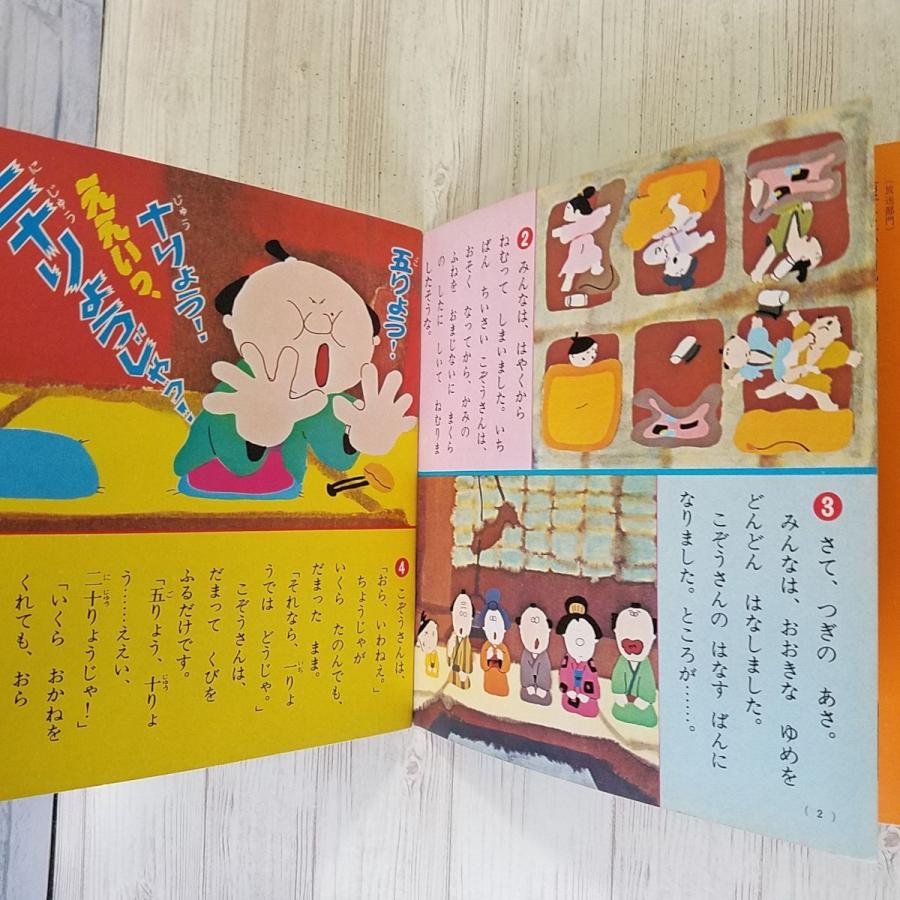 （放送部門）
2
みんなは、はやくから
ねむって　しまいました。いち
ばん　ちいさい　こぞうさんは、
おそく　なってから、かみの
ふねを　おまじないに　まくら
の　したに　しいて　ねむりま
したそうな。
3
さて、つぎの　あさ。
みんなは、おおきな　ゆめを
どんどん　はなしました。
こぞうさんの　はなす　ばんに
なりました。ところが……。
（2）
五りょう！
十りょう！
ええいっ、
二十りょうじゃっ！
4
こぞうさんは、
「おら、いわねえ。」
ちょうじゃが
いくら　たのんでも、
だまった　まま。
「それなら、一りょ
うでは　どうじゃ。」
こぞうさんは、
だまって　くびを
ふるだけです。
「五りょう、十りょ
う……ええい、
二十りょうじゃ！」
「いくら　おかねを
くれても、おら